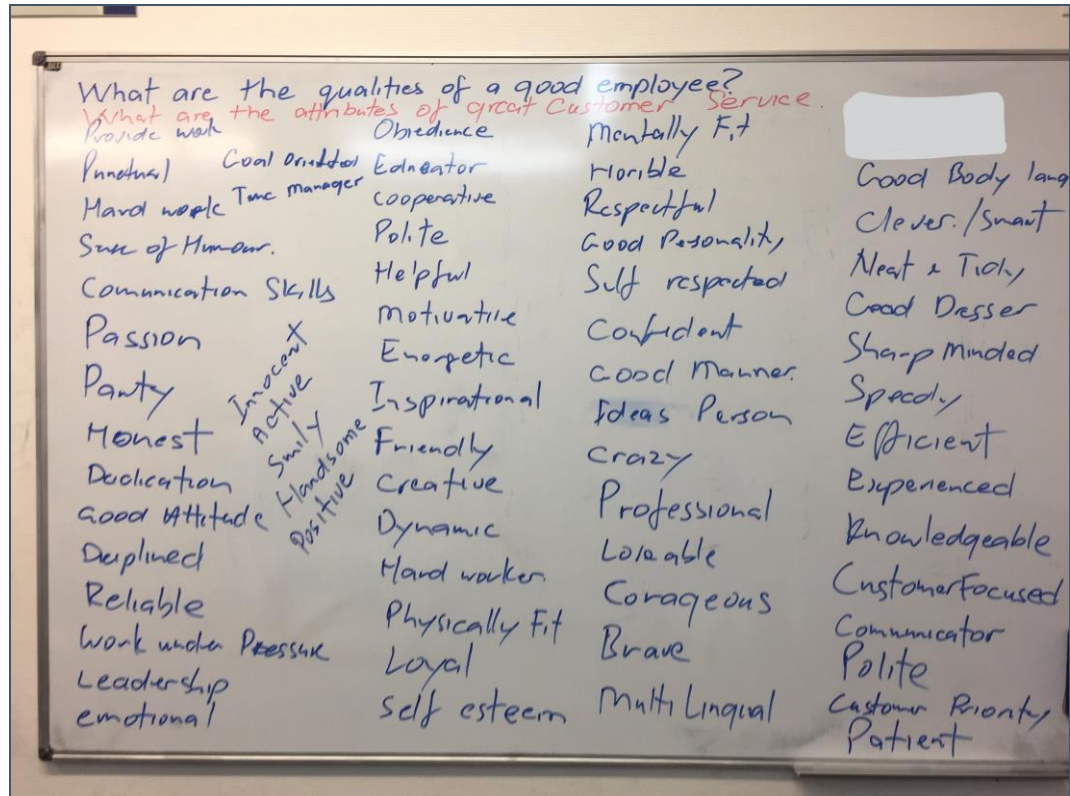 What are the qualities of a good employee?
What are the attributes of great Customer Service.
Provide work
Punctual
Goal Oriented
Hard work
Time Manager
Sense of Humour.
Comunication Skills
Passion
Honest
Dedication
Good Attitude
Reliable
Work under Pressure
Leadership
emotional
Innocent
Active
Smily
Handsome
Positive
Obedience
Educator
Cooperative
Polite
Helpful
Motivative
Energetic
Inspirational
Friendly
Creative
Dynamic
Hard worker.
Physically Fit
Loyal
Self esteem
Mentally Fit
Horible
Respectful
Good Pesonality
Self respected
Confident
Good Manner.
Ideas Person
Crazy
Professional
Loveable
Corageous
Brave
Multi Lingual
Good Body lang
Clever./Smart
Neat & Tidy
Good Dresser
Sharp Minded
Speedy
Efficient
Experienced
Knowledgeable
Customer Focused
Communicator
Polite
Customer Priority
Patient